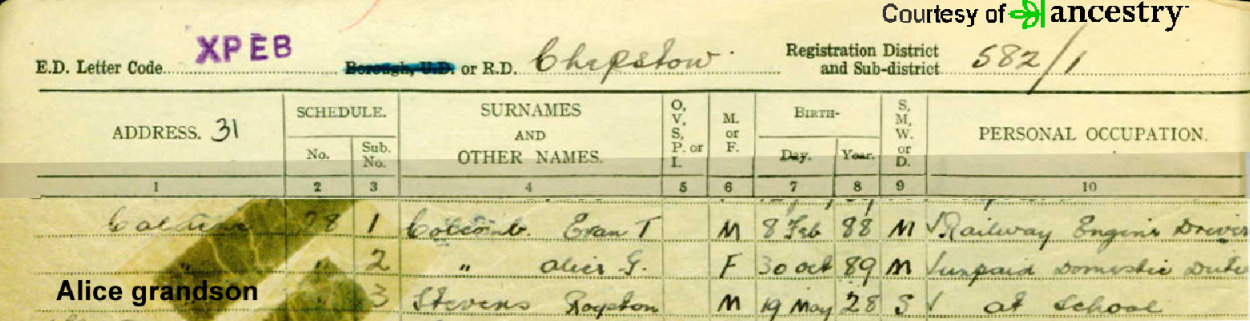 Courtesy of ancestry
XPEB
E.D. Letter Code Borough, U.D. or R.D. Chepstow Registration District and Sub-district 582/1
ADDRESS. 31 SCHEDULE. No. Sub. No. SURNAMES AND OTHER NAMES. O, V, S, P. or I. M. or F. BIRTH- Day. Year. S, M, W. or D. PERSONAL OCCUPATION.
1 2 3 4 5 6 7 8 9 10
28 1 Colcomb. Evan T M 8 Feb 88 M Railway Engine Driver
" " 2 " Alice G. F 30 Oct 89 M unpaid Domestic Dutie
Alice grandson 3 Stevens Royston M 19 May 28 S at School